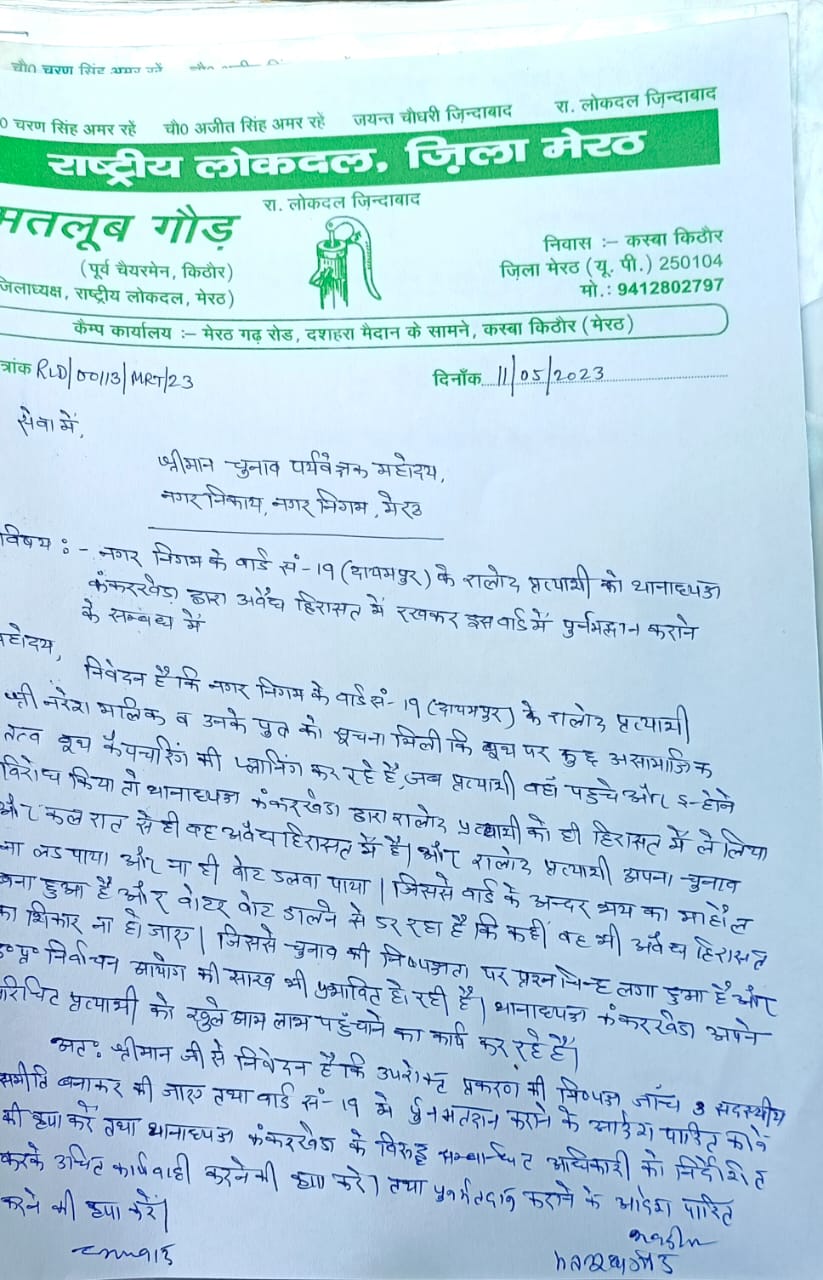 चौ0 चरण सिंह अमर रहें
0 चरण सिंह अमर रहें चौ0 अजीत सिंह अमर रहें जयन्त चौधरी ज़िन्दाबाद रा. लोकदल ज़िन्दाबाद
राष्ट्रीय लोकदल, ज़िला मेरठ
रा. लोकदल ज़िन्दाबाद
मतलूब गौड़
(पूर्व चैयरमेन, किठौर)
जिलाध्यक्ष, राष्ट्रीय लोकदल, मेरठ)
निवास :– कस्बा किठौर
ज़िला मेरठ (यू. पी.) 250104
मो.: 9412802797
कैम्प कार्यालय :– मेरठ गढ़ रोड, दशहरा मैदान के सामने, कस्बा किठौर (मेरठ)
त्रांक RLD/00113/MRT/23 दिनाँक 11/05/2023
सेवा में,
श्रीमान चुनाव पर्यवेक्षक महोदय,
नगर निकाय, नगर निगम, मेरठ
विषय : - नगर निगम के वार्ड सं-19 (दायमपुर) के रालोद प्रत्याशी को थानाध्यक्ष
कंकरखेडा द्वारा अवैध हिरासत में रखकर इस वार्ड में पुर्नमतदान कराने
के सम्बन्ध में
महोदय,
निवेदन है कि नगर निगम के वार्ड सं-19 (दायमपुर) के रालोद प्रत्याशी
श्री नरेश मालिक व उनके पुत्र को सूचना मिली कि बूथ पर कुछ असामाजिक
तत्व बूथ कैपचारिंग की प्लानिंग कर रहे है, जब प्रत्याशी वहाँ पहुंचे और इन्होने
विरोध किया तो थानाध्यक्ष कंकरखेडा द्वारा रालोद प्रत्याशी को ही हिरासत में ले लिया
और कल रात से ही वह अवैध हिरासत में है। और रालोद प्रत्याशी अपना चुनाव
ना लड पाया और ना ही वोट डलवा पाया। जिससे वार्ड के अन्दर भय का माहौल
बना हुआ है और वोटर वोट डालने से डर रहा है कि कहीं वह भी अवैध हिरासत
का शिकार ना हो जाए। जिससे चुनाव की निष्पक्षता पर प्रश्न चिन्ह लगा हुआ है और
उ०प्र० निर्वाचन आयोग की साख भी प्रभावित हो रही है। थानाध्यक्ष कंकरखेडा अपने
परिचित प्रत्याशी को खुले आम लाभ पहुँचाने का कार्य कर रहे हैं।
अतः श्रीमान जी से निवेदन है कि उपरोक्त प्रकरण की निष्पक्ष जाँच 3 सदस्यीय
समीति बनाकर की जाए तथा वार्ड सं-19 में पुनमतदान कराने के आदेश पारित करने
की कृपा करें तथा थानाध्यक्ष कंकरखेडा के विरुद्ध सम्बन्धित अधिकारी को निर्देशित
करके उचित कार्यवाही करने की कृपा करे। तथा पुनर्मतदान कराने के आदेश पारित
करने की कृपा करें।
धन्यवाद